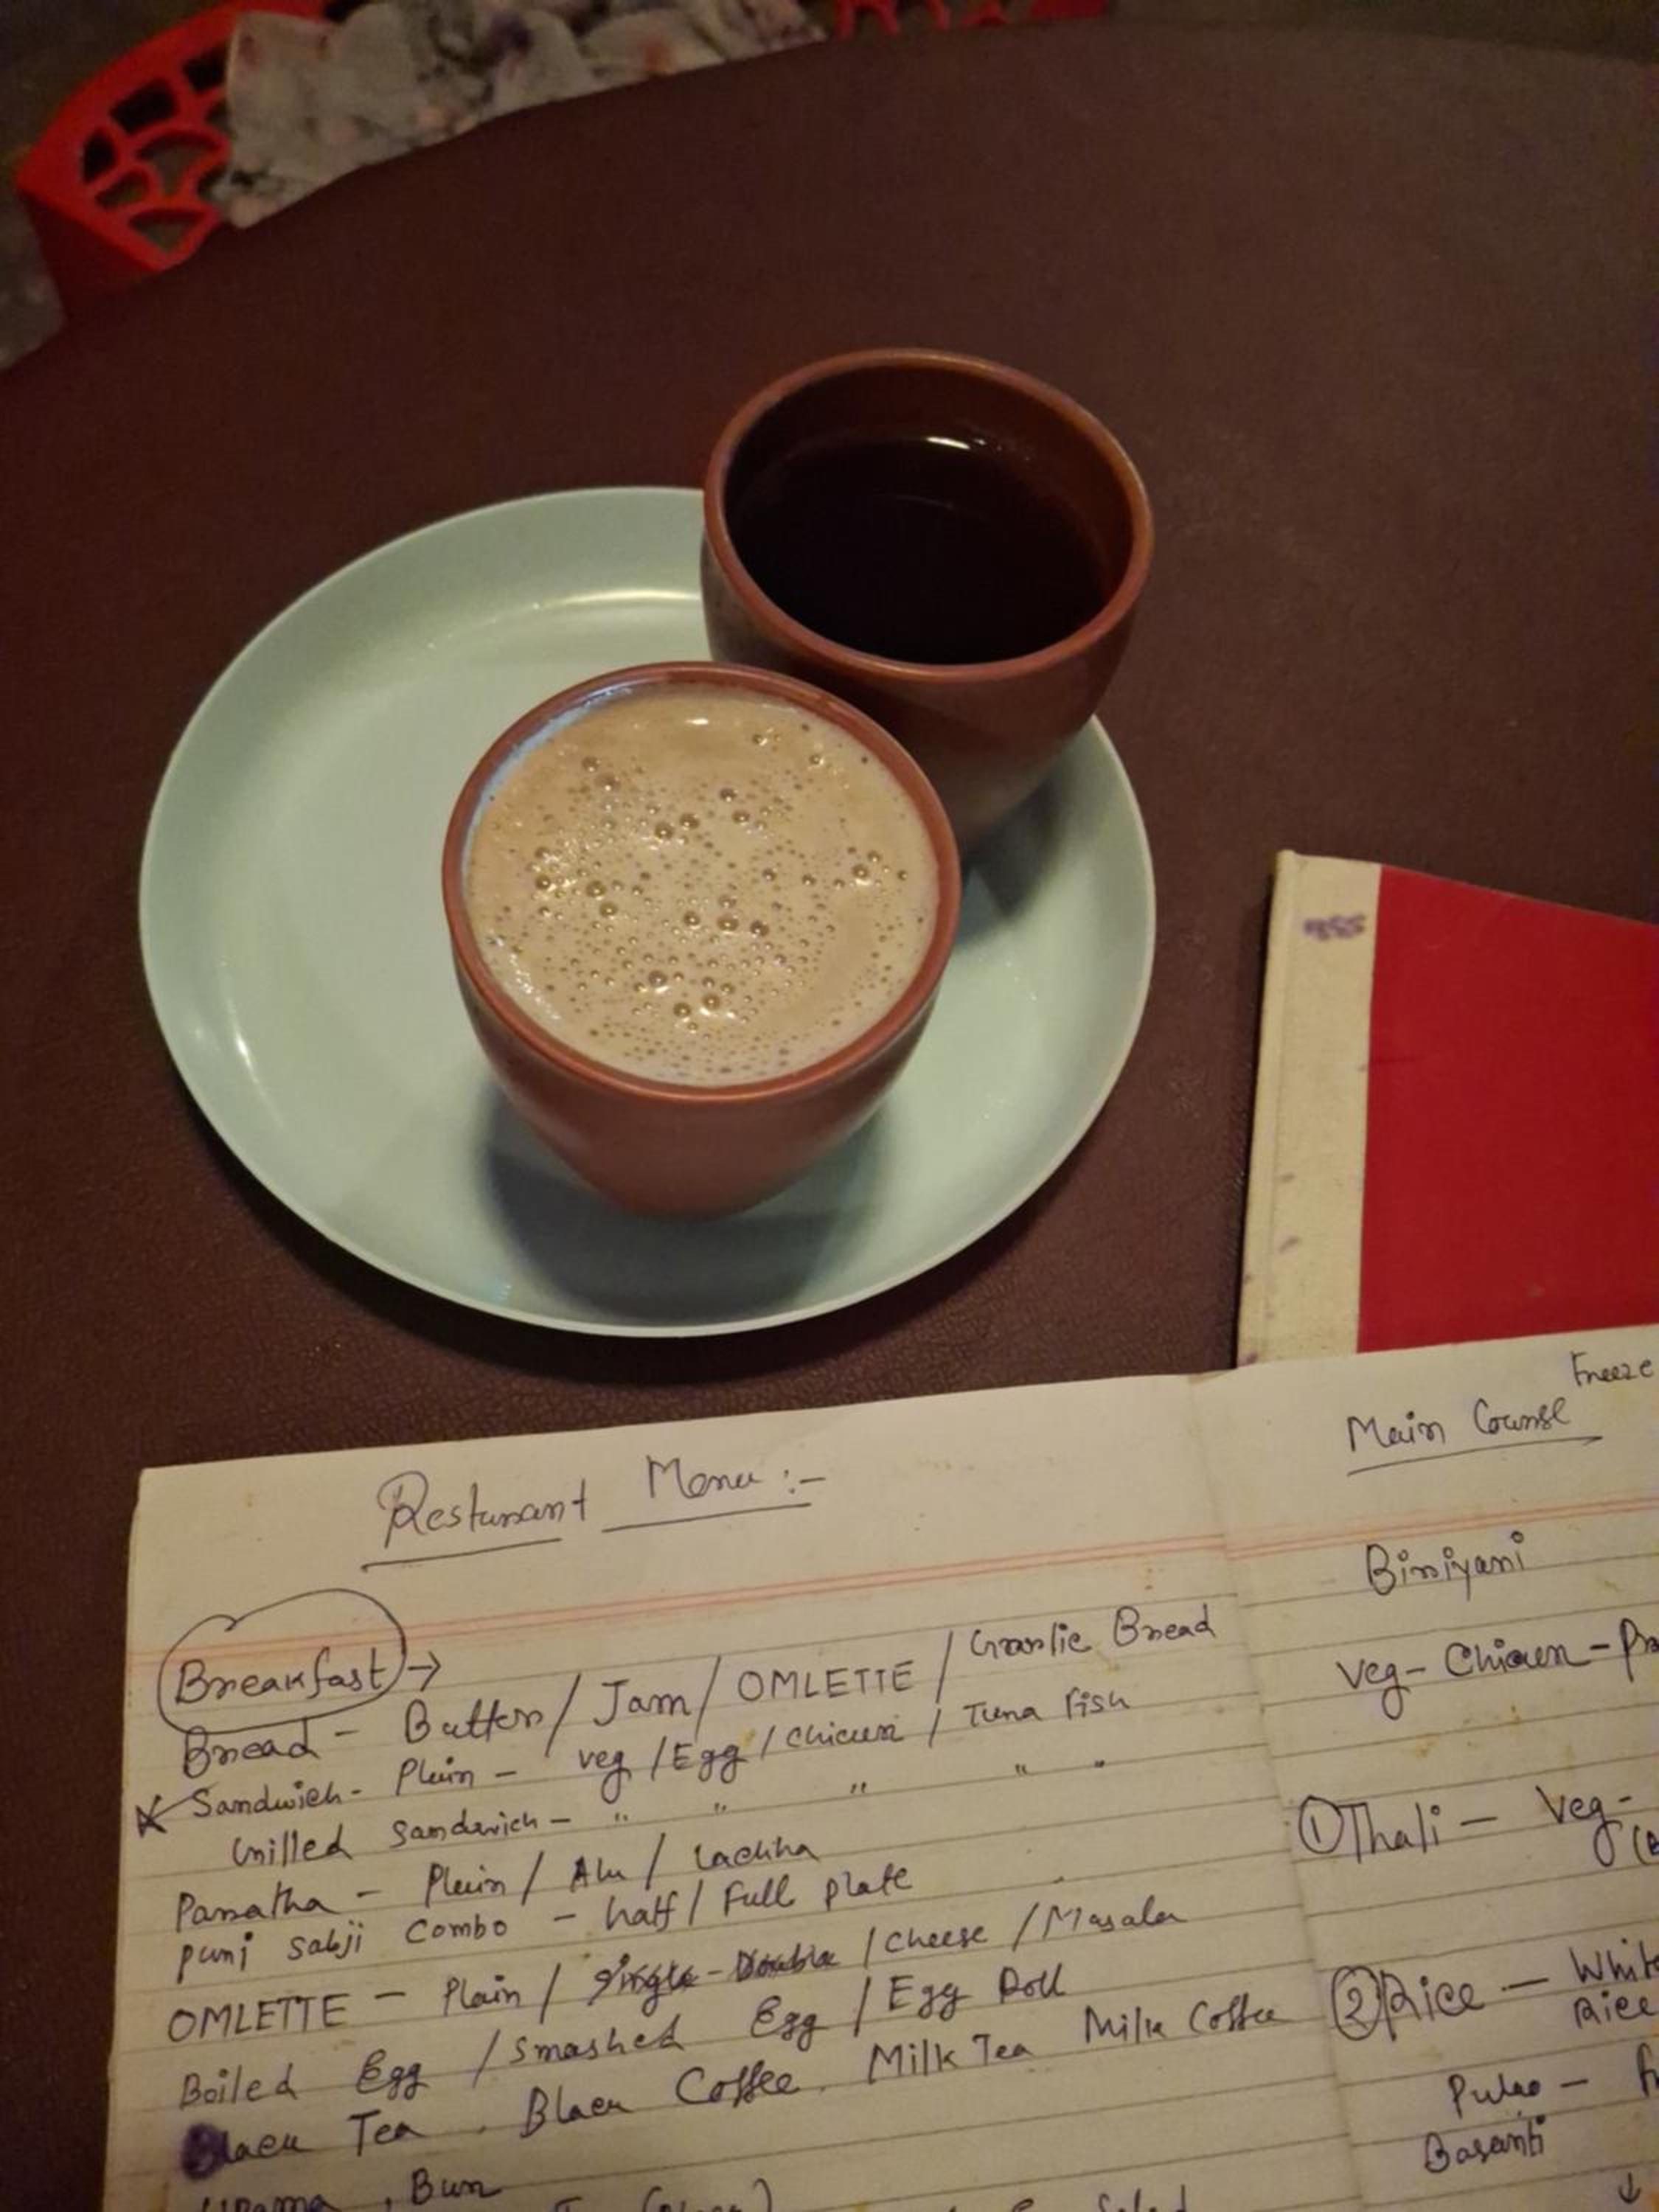 Restunant Menu :-
Breakfast →
Bread - Butter / Jam / OMLETTE / Garlic Bread
Sandwich - Plain - veg / Egg / chicken / Tuna Fish
Grilled Sandwich - " " " " "
Paratha - Plain / Alu / Lachha
puri sabji Combo - half / Full plate
OMLETTE - Plain / Single - Double / Cheese / Masala
Boiled Egg / Smashed Egg / Egg Roll
Black Tea . Black Coffee . Milk Tea Milk Coffee
, Bun
Freeze
Main Course
Biriyani
Veg - Chicken -
① Thali - Veg -
② Rice - White
Rice
Pulao -
Basanti
↓